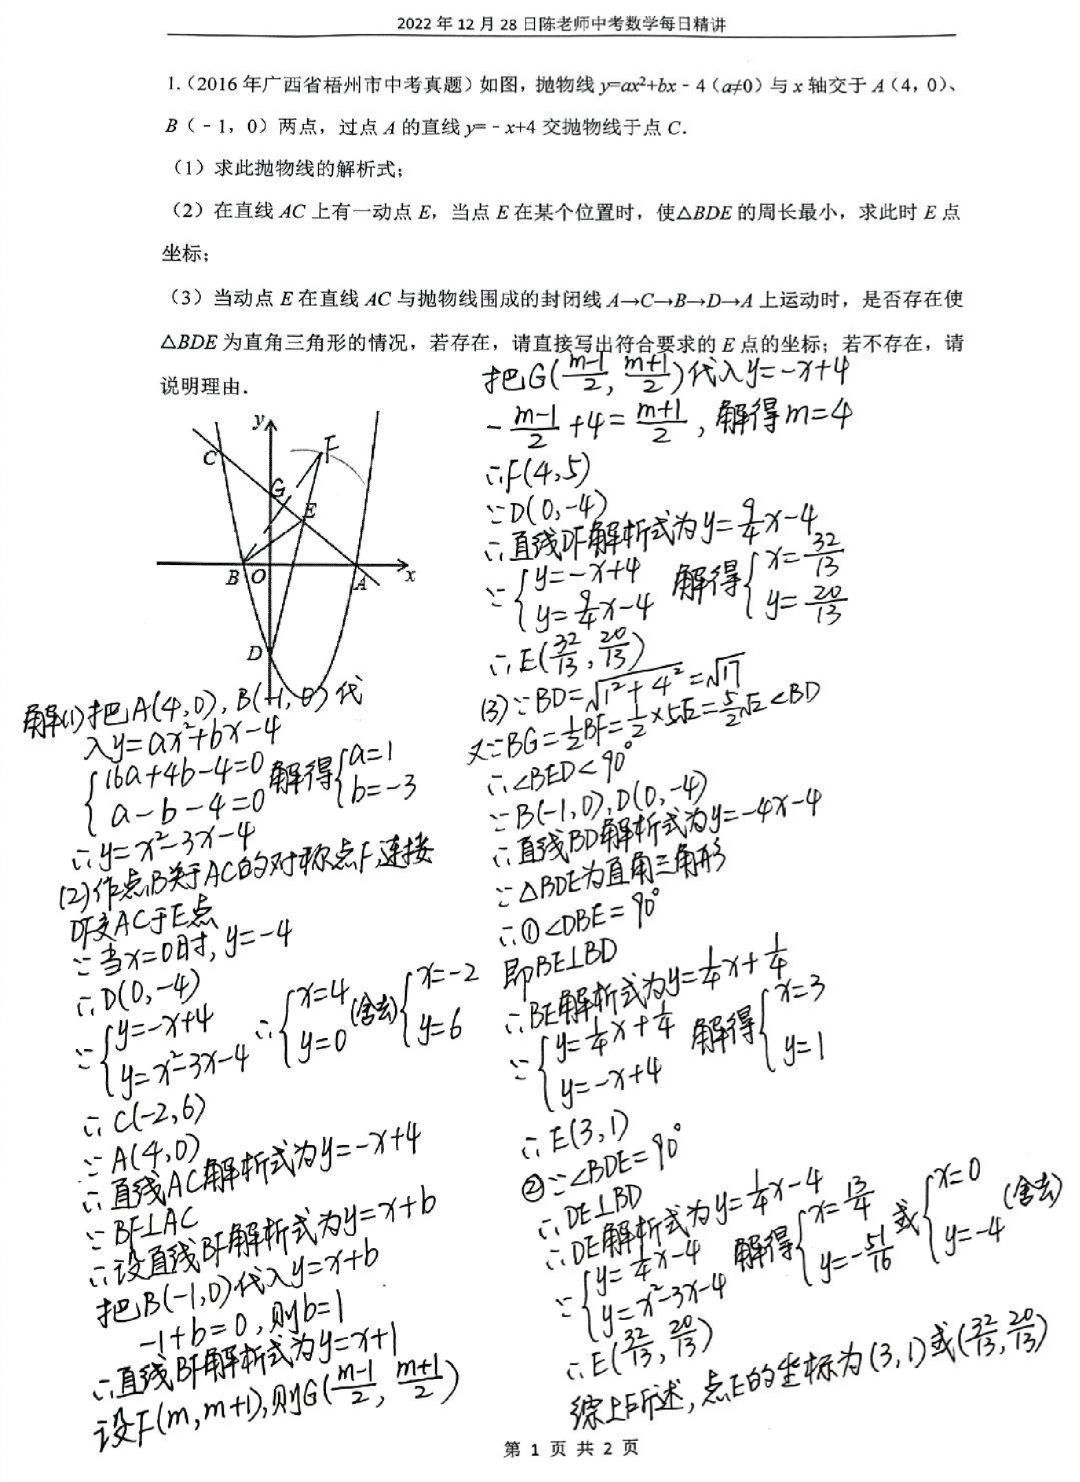 2022 年 12 月 28 日陈老师中考数学每日精讲
1.（2016 年广西省梧州市中考真题）如图，抛物线 y=ax²+bx﹣4（a≠0）与 x 轴交于 A（4，0）、
B（﹣1，0）两点，过点 A 的直线 y=﹣x+4 交抛物线于点 C．
（1）求此抛物线的解析式；
（2）在直线 AC 上有一动点 E，当点 E 在某个位置时，使△BDE 的周长最小，求此时 E 点
坐标；
（3）当动点 E 在直线 AC 与抛物线围成的封闭线 A→C→B→D→A 上运动时，是否存在使
△BDE 为直角三角形的情况，若存在，请直接写出符合要求的 E 点的坐标；若不存在，请
说明理由．
y
C
F
G
E
B
O
A
x
D
解(1)把A(4,0), B(-1,0)代
入y=ax²+bx-4
{16a+4b-4=0 解得{a=1
a-b-4=0 b=-3
∴y=x²-3x-4
(2)作点B关于AC的对称点F,连接
DF交AC于E点
∵当x=0时, y=-4
∴D(0,-4)
∵{y=-x+4 ∴{x=4 (舍去) {x=-2
y=x²-3x-4 y=0 y=6
∴C(-2,6)
∵A(4,0)
∴直线AC解析式为y=-x+4
∵BF⊥AC
∴设直线BF解析式为y=x+b
把B(-1,0)代入y=x+b
-1+b=0,则b=1
∴直线BF解析式为y=x+1
设F(m,m+1),则G(m-1/2, m+1/2)
把G(m-1/2, m+1/2)代入y=-x+4
-m-1/2+4=m+1/2, 解得m=4
∴F(4,5)
∵D(0,-4)
∴直线DF解析式为y=9/4x-4
∵{y=-x+4 解得{x=32/13
y=9/4x-4 y=20/13
∴E(32/13, 20/13)
(3)∵BD=√1²+4²=√17
又∵BG=1/2BF=1/2×5√2=5/2√2<BD
∴∠BED<90°
∵B(-1,0),D(0,-4)
∴直线BD解析式为y=-4x-4
∵△BDE为直角三角形
∴①∠DBE=90°
即BE⊥BD
∴BE解析式为y=1/4x+1/4
∵{y=1/4x+1/4 解得{x=3
y=-x+4 y=1
∴E(3,1)
②∵∠BDE=90°
∴DE⊥BD
∴DE解析式为y=1/4x-4
∵{y=1/4x-4 解得{x=13/4 或{x=0 (舍去)
y=x²-3x-4 y=-51/16 y=-4
∴E(32/13, 20/13)
综上所述,点E的坐标为(3,1)或(32/13, 20/13)
第 1 页 共 2 页